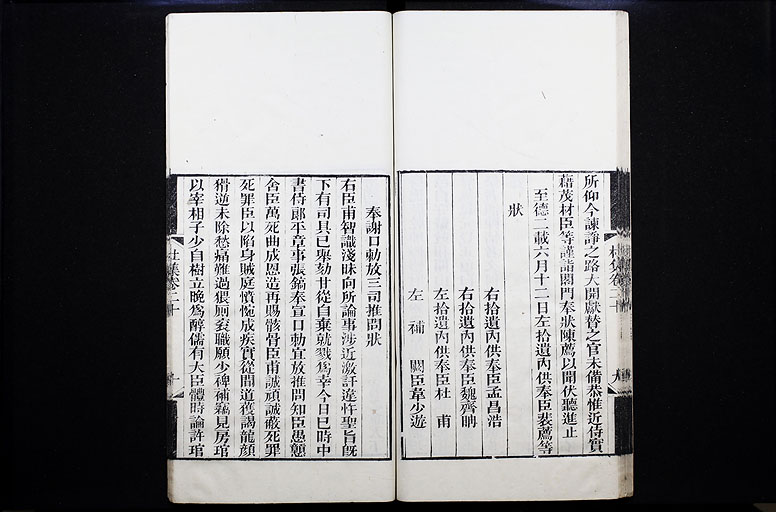 所仰今諫諍之路大開獻替之官未備恭惟近侍實
藉茂材臣等謹詣閤門奉狀陳薦以聞伏聽進止
至德二載六月十二日左拾遺內供奉臣裴薦等
狀
右拾遺內供奉臣孟昌浩
右拾遺內供奉臣魏齊聃
左拾遺內供奉臣杜甫
左補闕臣韋少遊
奉謝口勅放三司推問狀
右臣甫智識淺昧向所論事涉近激訐違忤聖旨旣
下有司具已舉劾甘從自棄就戮爲幸今日巳時中
書侍郞平章事張鎬奉宣口勅宜放推問知臣愚戇
舍臣萬死曲成恩造再賜骸骨臣甫誠頑誠蔽死罪
死罪臣以陷身賊庭憤惋成疾實從間道獲謁龍顏
猾逆未除愁痛難過猥厠衮職願少裨補竊見房琯
以宰相子少自樹立晚爲醇儒有大臣體時論許琯
杜集卷二十